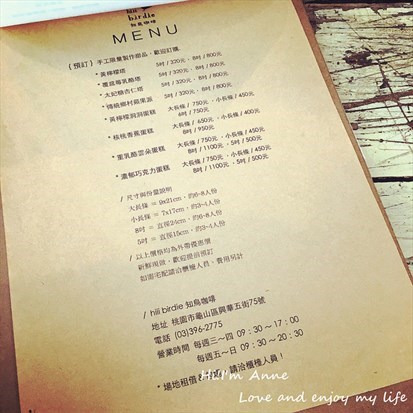 hiii
birdie
知鳥咖啡
MENU
(預訂) 手工限量製作甜品，歡迎訂購
*黃檸檬塔 5吋 / 320元、8吋 / 800元
*覆盆莓乳酪塔 5吋 / 320元、8吋 / 800元
*太妃糖杏仁塔 5吋 / 320元、8吋 / 800元
*傳統鄉村蘋果派 5吋 / 320元、8吋 / 800元
*黃檸檬潤潤蛋糕 大長條 / 750元，小長條 / 450元
6吋 / 750元
*核桃香蕉蛋糕 大長條 / 650元、小長條 / 400元
8吋 / 950元
*重乳酪雲朵蛋糕 大長條 / 750元、小長條 / 450元
8吋 / 1100元、5吋 / 500元
*濃郁巧克力蛋糕 大長條 / 750元、小長條 / 450元
8吋 / 1100元、5吋 / 500元
/ 尺寸與份量說明
大長條 = 9x21cm，約6~8人份
小長條 = 7x17cm，約3~4人份
8吋 = 直徑24cm，約6~8人份
5吋 = 直徑15cm，約3~4人份
/ 以上價格均為外帶優惠價
新鮮現做，歡迎提前預訂
如需宅配請洽櫃檯人員、費用另計
/ hiii birdie 知鳥咖啡
地址 桃園市龜山區興華五街75號
電話 (03)396-2775
營業時間 每週三~四 09：30 ~ 17：00
每週五~日 09：30 ~ 20：30
*場地租借 請洽櫃檯人員！
Hi I'm Anne
Love and enjoy my life